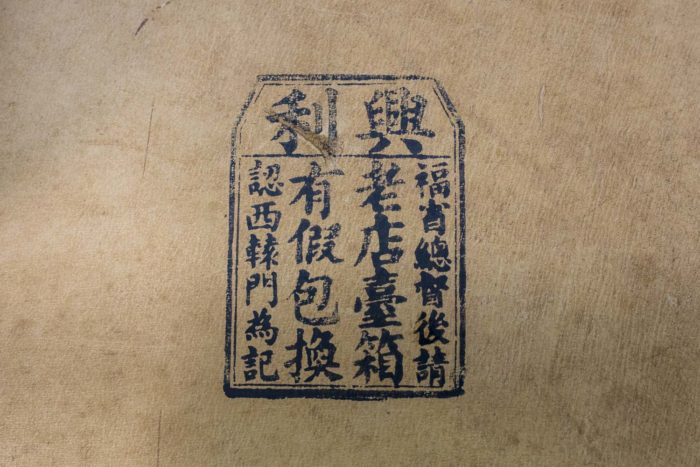 興利
福省總督後請
老店臺箱
有假包換
認西轅門為記